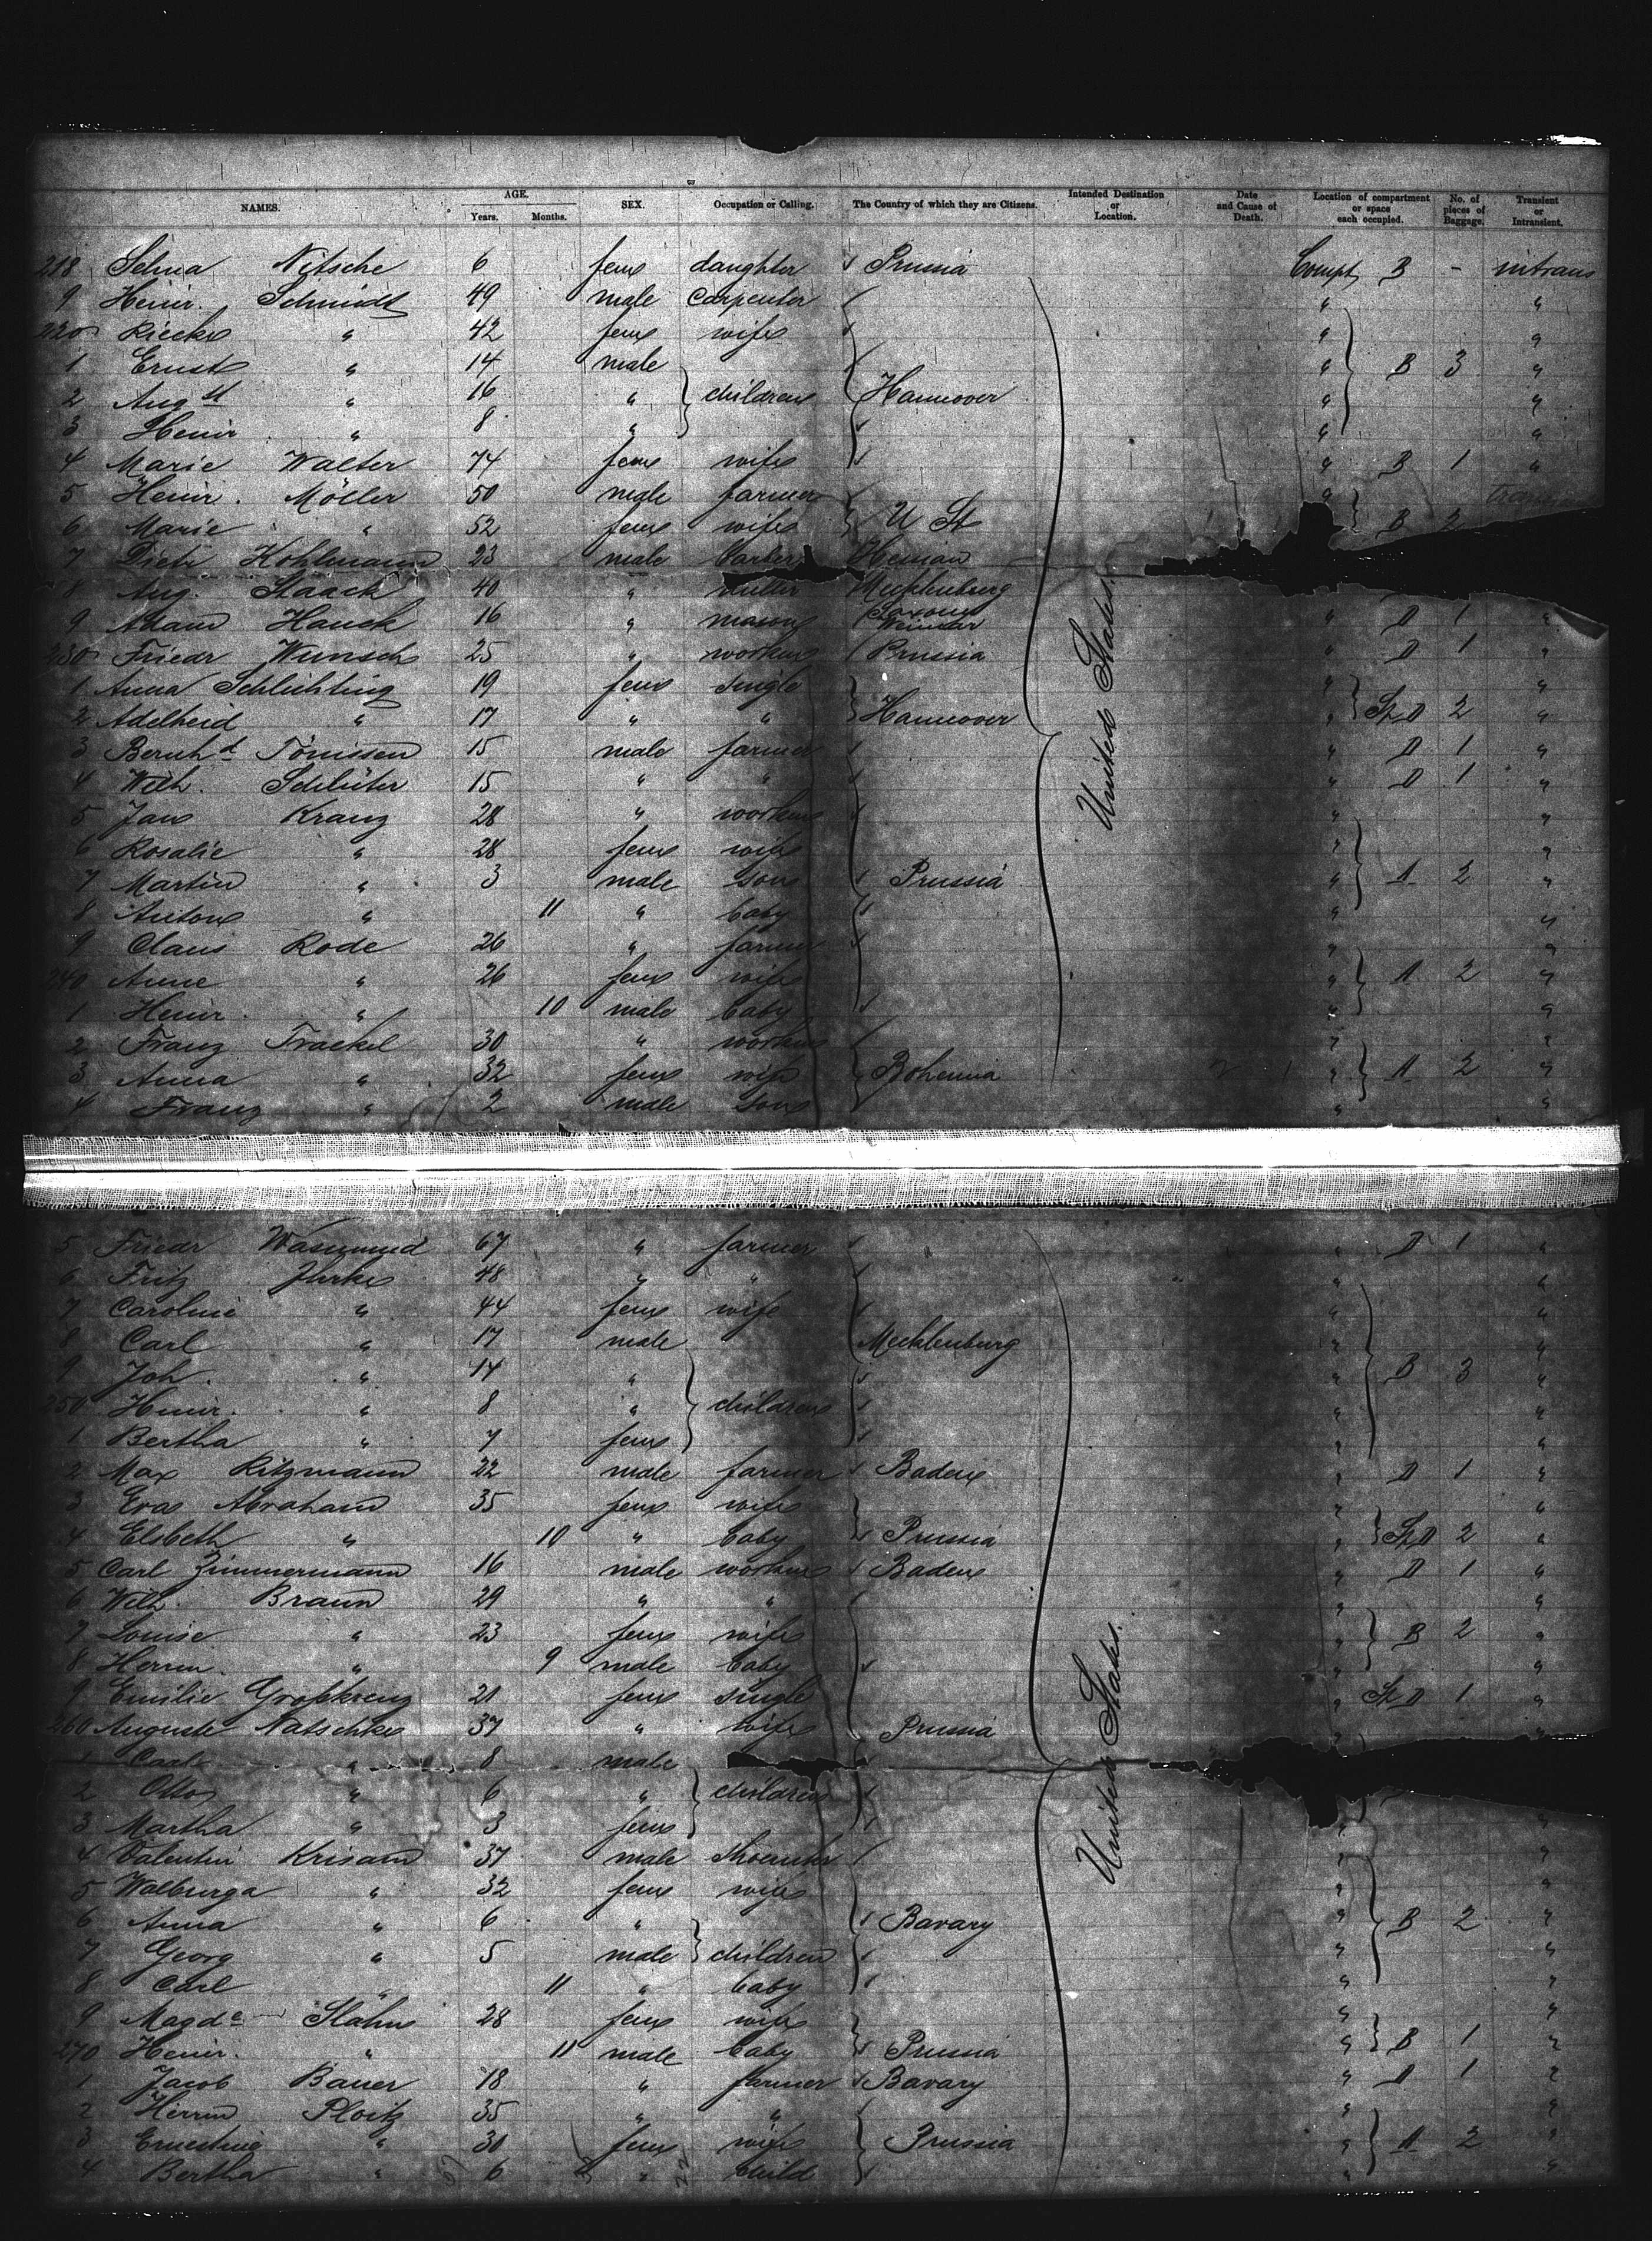 NAMES. AGE. Years. Months. SEX. Occupation or Calling. The Country of which they are Citizens. Intended Destination or Location. Date and Cause of Death. Location of compartment or space each occupied. No. of pieces of Baggage. Transient or Intransient.
218 Selma Nitsche 6 fem daughter Prussia Compt B - intrans
9 Heinr. Schmidt 49 male carpenter "  "
220 Riecke " 42 fem wife " "
1 Ernst " 14 male " B 3 "
2 Augst " 16 " children Hannover " "
3 Heinr " 8 " " "
4 Marie Walter 74 fem wife " B 1 "
5 Heinr. Möller 50 male farmer "
6 Marie " 52 fem wife U St B 2
7 Dietr Kohlmann 23 male barber Hessian
8 Aug. Staack 40 " Mecklenburg
9 Adam Hauck 16 " mason Saxony Weimar " D 1 "
230 Friedr Wunsch 25 " workm Prussia " D 1 "
1 Anna Schlichting 19 fem single " "
2 Adelheid " 17 " " Hannover " St D 2 "
3 Bernhd Tönissen 15 male farmer " D 1 "
4 Wilh. Schlüter 15 " " " D 1 "
5 Jan Kranz 28 " workm " "
6 Rosalie " 28 fem wife " "
7 Martin " 3 male son Prussia " A 2 "
8 Anton " 11 " baby " "
9 Claus Rode 26 " farmer " "
240 Anne " 26 fem wife " A 2 "
1 Heinr. " 10 male baby " "
2 Franz Trackel 30 " workm " "
3 Anna " 32 fem wife Bohemia " A 2 "
4 Franz " 2 male son " "
United States.
5 Friedr Wasmund 67 " farmer " D 1 "
6 Fritz Jhrke 48 " " " "
7 Caroline " 44 fem wife " "
8 Carl " 17 male Mecklenburg " "
9 Joh. " 14 " " B 3 "
250 Heinr. " 8 " children " "
1 Bertha " 7 fem " "
2 Max Ritzmann 22 male farmer Baden " D 1 "
3 Eva Abraham 35 fem wife " "
4 Elsbeth " 10 " baby Prussia " St D 2 "
5 Carl Zimmermann 16 male workm Baden " D 1 "
6 Wilh. Braun 29 " " " "
7 Louise " 23 fem wife " B 2 "
8 Herm. " 9 male baby " "
9 Emilie Grobkreuz 21 fem single " St D 1 "
260 Auguste Natschke 37 " wife Prussia " "
1 Carl " 8 male
2 Otto " 6 " children
3 Martha " 3 fem " "
4 Valentin Krisam 37 male shoemkr " "
5 Walburga " 32 fem wife " "
6 Anna " 6 " Bavary " B 2 "
7 Georg " 5 male children " "
8 Carl " 11 " baby " "
9 Magde Slahn 28 fem wife " "
270 Heinr. " 11 male baby Prussia " B 1 "
1 Jacob Bauer 18 " farmer Bavary " A 1 "
2 Herrm Ploitz 35 " " " "
3 Ernestine " 30 fem wife Prussia " A 2 "
4 Bertha " 6 " child " "
United States.